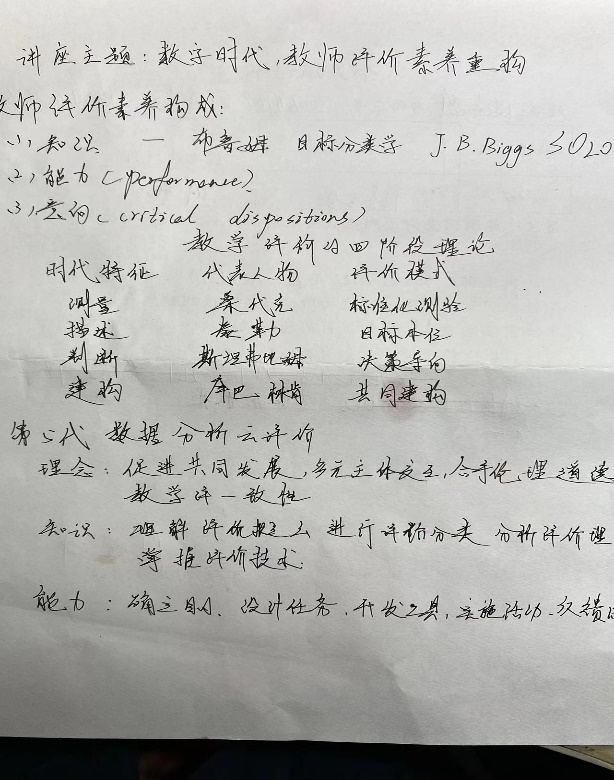 讲座主题：数字时代，教师评价素养重构
教师评价素养构成：
(1) 知识 — 布鲁姆 目标分类学 J.B.Biggs SOLO
(2) 能力 (performance)
(3) 意向 (critical dispositions)
教学评价的四阶段理论
时代特征 代表人物 评价模式
测量 桑代克 标准化测验
描述 泰勒 目标本位
判断 斯坦弗比姆 决策导向
建构 库巴 林肯 共同建构
第5代 数据分析云评价
理念：促进共同发展，多元主体交互，合乎伦理道德
教学评一致性
知识：理解评价概念 进行评价分类 分析评价理
掌握评价技术
能力：确立目的、设计任务、开发工具，实施活动、反馈